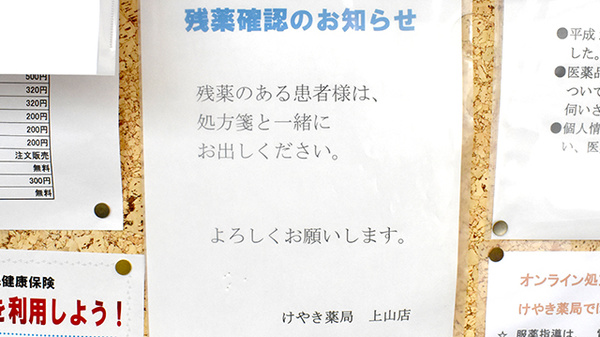 残薬確認のお知らせ
残薬のある患者様は、
処方箋と一緒に
お出しください。
よろしくお願いします。
けやき薬局 上山店
500円
320円
320円
200円
200円
注文販売
無料
300円
無料
健康保険
を利用しよう!
●平成
した。
●医薬品
ついて
伺いさ
●個人情
い、医
オンライン処
けやき薬局で
☆ 服薬指導は、